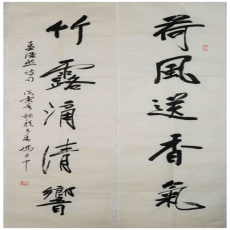 荷風送香氣
竹露滴清響
孟浩然诗句